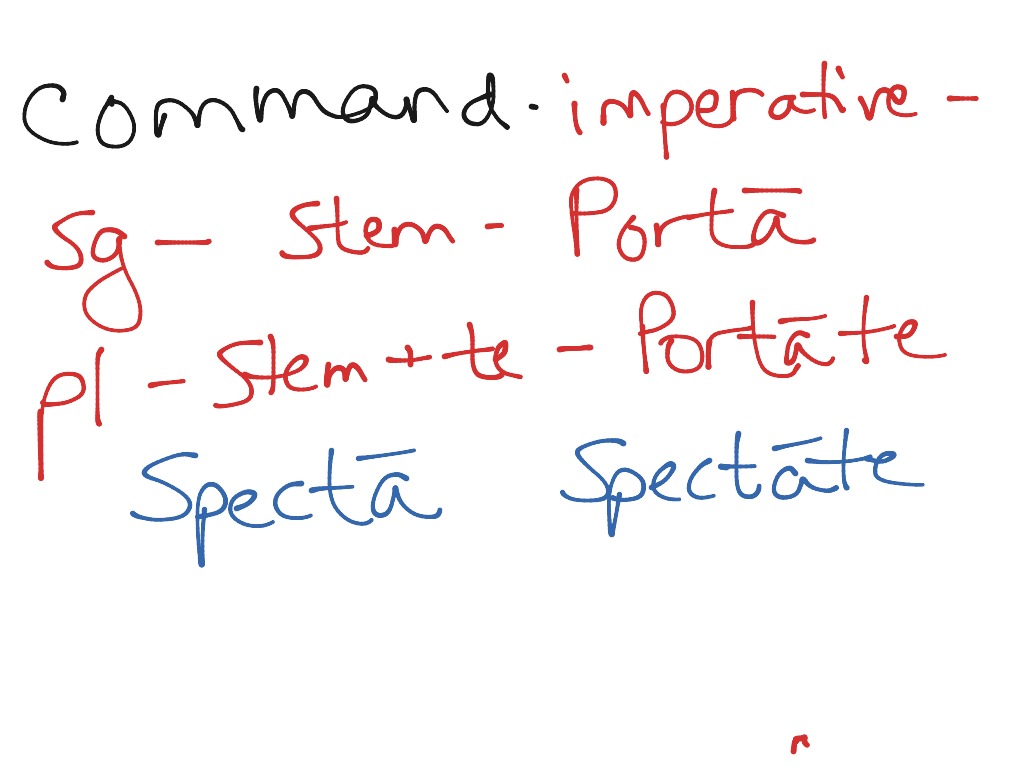 Command. imperative -
sg - stem - Portā
pl - Stem + te - Portāte
Spectā Spectāte